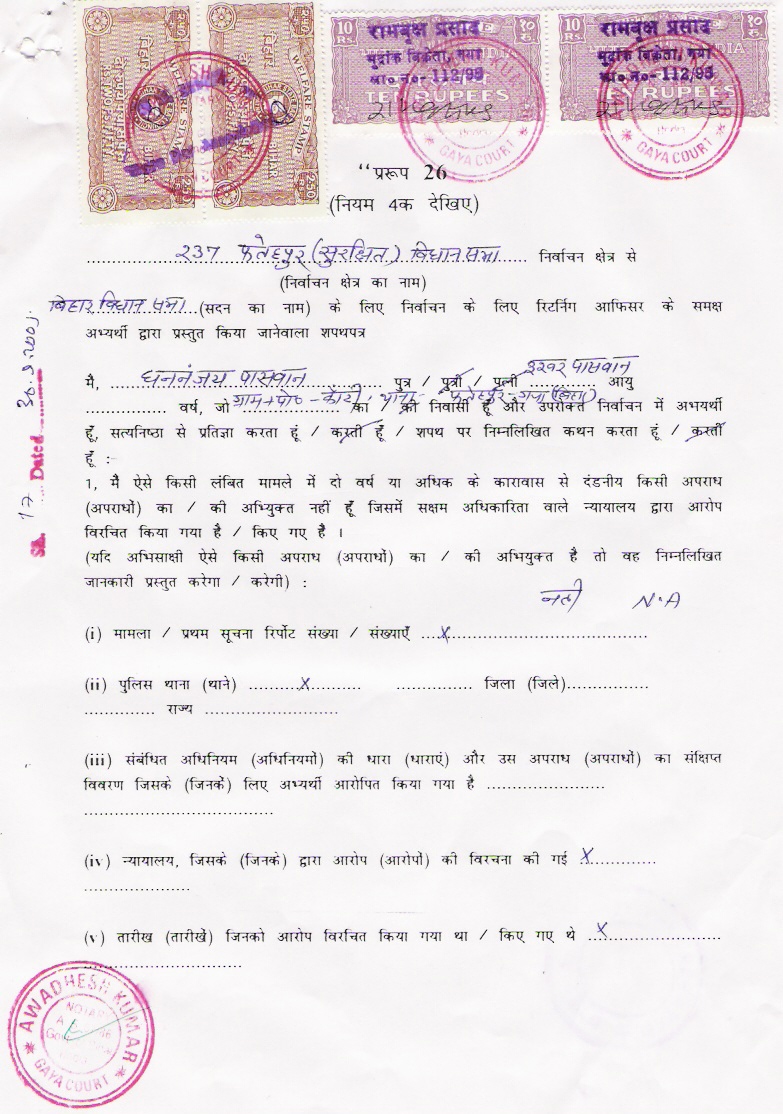 10 Rs. १० रु.
रामबृक्ष प्रसाद
मुद्रांक बिक्रेता, गया
ला० न०- 112/95
TEN RUPEES
10 Rs. १० रु.
रामबृक्ष प्रसाद
मुद्रांक बिक्रेता, गया
ला० न०- 112/95
TEN RUPEES
WELFARE STAMP
बिहार
BIHAR
WELFARE STAMP
बिहार
BIHAR
GAYA COURT
GAYA COURT
“प्ररूप 26
(नियम 4क देखिए)
237 फतेहपुर (सुरक्षित) विधान सभा निर्वाचन क्षेत्र से
(निर्वाचन क्षेत्र का नाम)
बिहार विधान सभा (सदन का नाम) के लिए निर्वाचन के लिए रिटर्निग आफिसर के समक्ष
अभ्यर्थी द्वारा प्रस्तुत किया जानेवाला शपथपत्र
मै, धननंजय पासवान पुत्र / पुत्री / पत्नी ईश्वर पासवान आयु
............... वर्ष, जो ग्राम+पो०- केरी, थाना- फतेहपुर-गया (बिहार) का / की निवासी हूँ और उपरोक्त निर्वाचन में अभयर्थी
हूँ, सत्यनिष्ठा से प्रतिज्ञा करता हूं / करती हूँ / शपथ पर निम्नलिखित कथन करता हूं / करती
हूँ :-
1, मै ऐसे किसी लंबित मामले में दो वर्ष या अधिक के कारावास से दंडनीय किसी अपराध
(अपराधों) का / की अभियुक्त नहीं हूँ जिसमें सक्षम अधिकारिता वाले न्यायालय द्वारा आरोप
विरचित किया गया है / किए गए है ।
(यदि अभिसाक्षी ऐसे किसी अपराध (अपराधों) का / की अभियुक्त है तो वह निम्नलिखित
जानकारी प्रस्तुत करेगा / करेगी) :
नही N.A
(i) मामला / प्रथम सूचना रिर्पोट संख्या / संख्याएँ ....X....
(ii) पुलिस थाना (थाने) ..........X.......... ............... जिला (जिले)................
............. राज्य .........................
(iii) संबंधित अधिनियम (अधिनियमों) की धारा (धाराएं) और उस अपराध (अपराधों) का संक्षिप्त
विवरण जिसके (जिनके) लिए अभ्यर्थी आरोपित किया गया है ........................
...................................
(iv) न्यायालय, जिसके (जिनके) द्वारा आरोप (आरोपों) की विरचना की गई X.............
....................
(v) तारीख (तारीखें) जिनको आरोप विरचित किया गया था / किए गए थे X.........................
..............................
Sl. 17 Dated
AWADHESH KUMAR
GAYA COURT